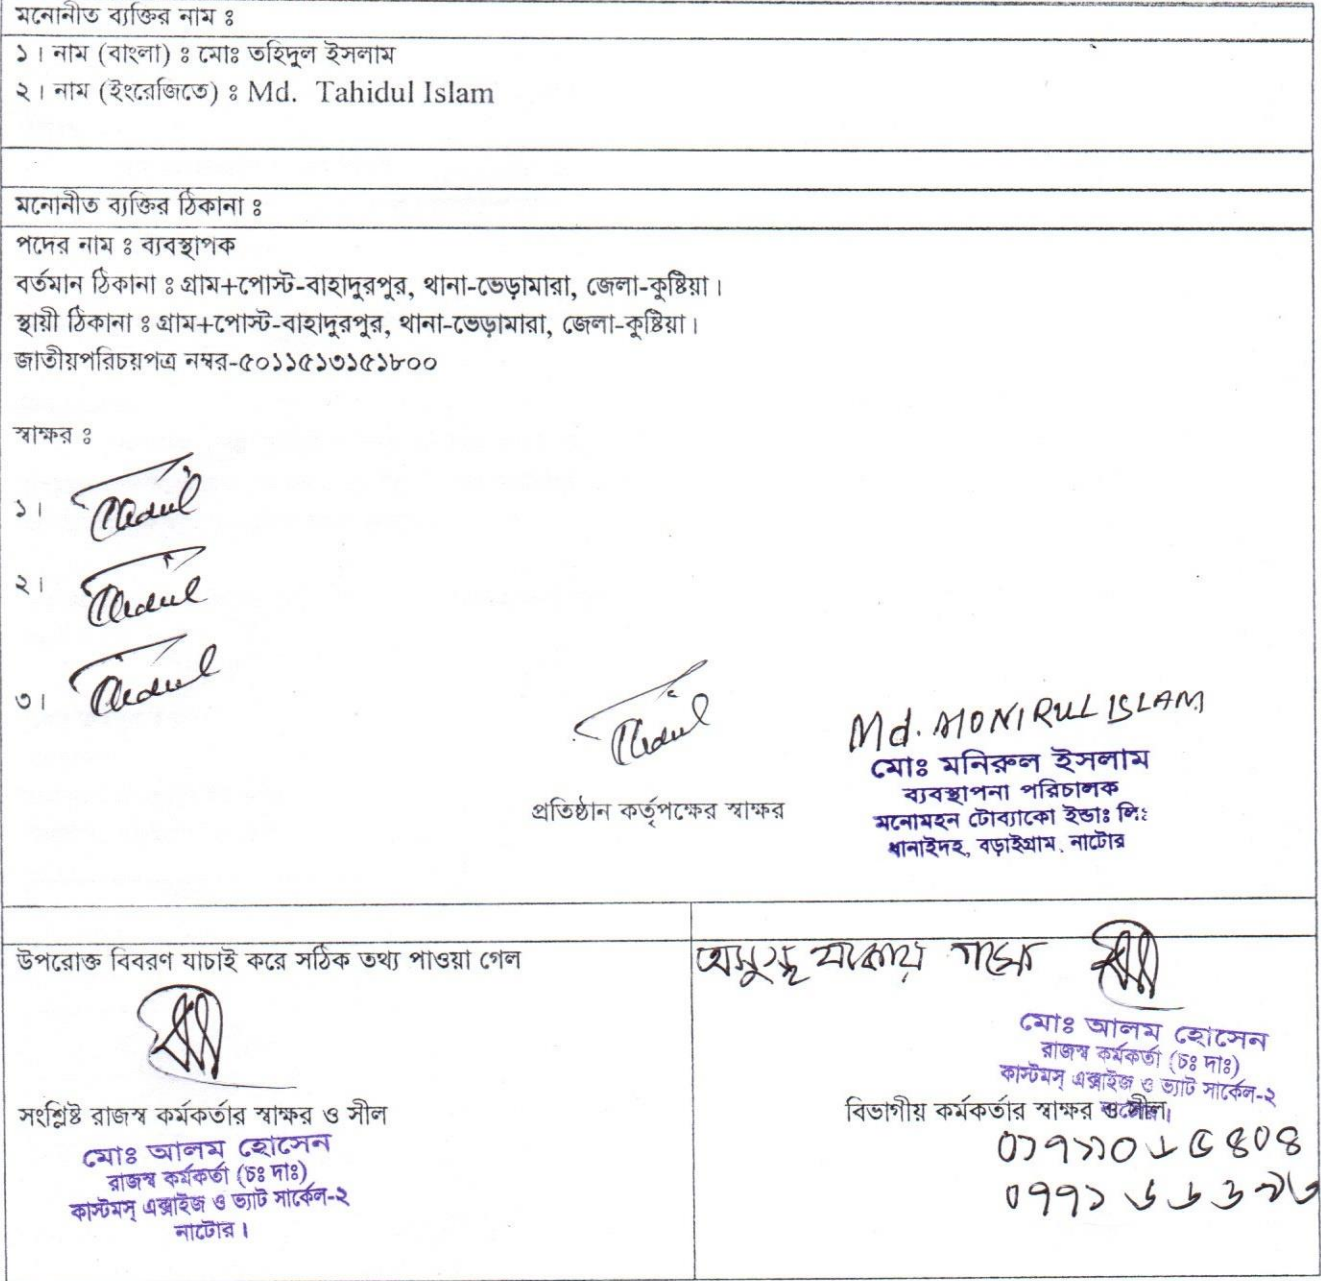 মনোনীত ব্যক্তির নাম ঃ
১। নাম (বাংলা) ঃ মোঃ তহিদুল ইসলাম
২। নাম (ইংরেজিতে) ঃ Md. Tahidul Islam
মনোনীত ব্যক্তির ঠিকানা ঃ
পদের নাম ঃ ব্যবস্থাপক
বর্তমান ঠিকানা ঃ গ্রাম+পোস্ট-বাহাদুরপুর, থানা-ভেড়ামারা, জেলা-কুষ্টিয়া।
স্থায়ী ঠিকানা ঃ গ্রাম+পোস্ট-বাহাদুরপুর, থানা-ভেড়ামারা, জেলা-কুষ্টিয়া।
জাতীয়পরিচয়পত্র নম্বর-৫০১১৫১৩১৫১৮০০
স্বাক্ষর ঃ
১।
২।
৩।
প্রতিষ্ঠান কর্তৃপক্ষের স্বাক্ষর
Md. MONIRUL ISLAM
মোঃ মনিরুল ইসলাম
ব্যবস্থাপনা পরিচালক
মনোমহন টোব্যাকো ইন্ডাঃ লিঃ
ধানাইদহ, বড়াইগ্রাম, নাটোর
উপরোক্ত বিবরণ যাচাই করে সঠিক তথ্য পাওয়া গেল
সংশ্লিষ্ট রাজস্ব কর্মকর্তার স্বাক্ষর ও সীল
মোঃ আলম হোসেন
রাজস্ব কর্মকর্তা (চঃ দাঃ)
কাস্টমস্ এক্সাইজ ও ভ্যাট সার্কেল-২
নাটোর।
মোঃ আলম হোসেন
রাজস্ব কর্মকর্তা (চঃ দাঃ)
কাস্টমস্ এক্সাইজ ও ভ্যাট সার্কেল-২
নাটোর।
বিভাগীয় কর্মকর্তার স্বাক্ষর ও সীল